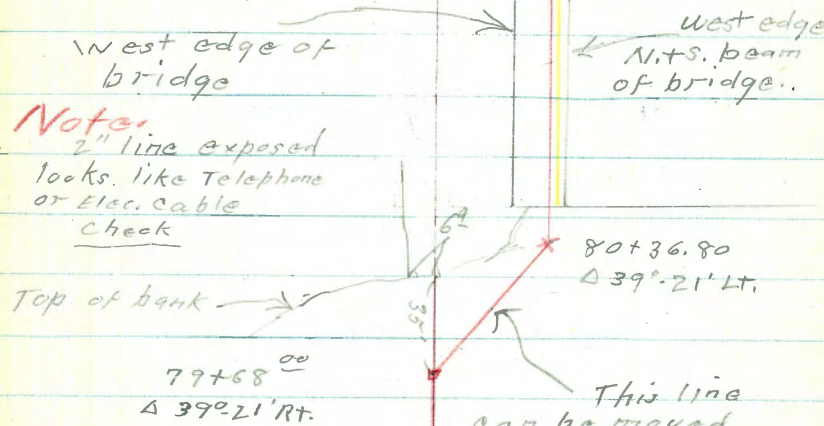 West edge of
bridge
West edge
N.+S. beam
of bridge..
Note.
2" line exposed
looks. like Telephone
or Elec. Cable
Check
6'
80+36.80
Δ 39°-21' Lt.
Top of bank
35'
79+68 00
Δ 39°-21' Rt.
This line
can be moved